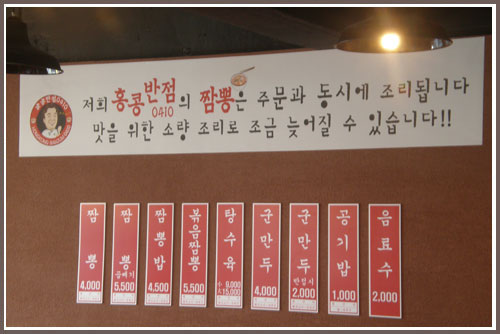 저희 홍콩반점0410의 짬뽕은 주문과 동시에 조리됩니다
맛을 위한 소량 조리로 조금 늦어질 수 있습니다!!
짬뽕 4.000
짬뽕 곱빼기 5.500
짬뽕밥 4.500
볶음짬뽕 5.500
탕수육 小 9.000 大 15.000
군만두 4.000
군만두 반접시 2.000
공기밥 1.000
음료수 2.000